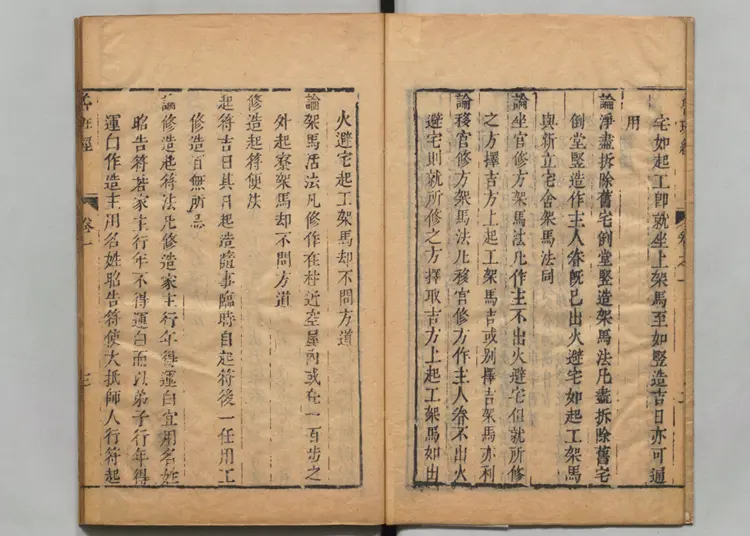 宅如起工卽就坐上架馬至如竪造吉日亦可通
用
論淨盡拆除舊宅倒堂竪造架馬法凡盡拆除舊宅
倒堂竪造作主人眷旣已出火避宅如起工架馬
與新立宅舍架馬法同
論坐宮修方架馬法凡作主不出火避宅但就所修
之方擇吉方上起工架馬吉或別擇吉架馬亦利
論移宮修方架馬法凡移宮修方作主人眷不出火
避宅則就所修之方擇取吉方上起工架馬如出
火避宅起工架馬却不問方道
論架馬活法凡修作在柱近空屋內或在一百步之
外起寮架馬却不問方道
修造起符便法
起符吉日其日起造隨事臨時自起符後一任用工
修造百無所忌
論修造起符法凡修造家主行年得運白宜用名姓
昭告符若家主行年不得運白而以弟子行年得
運白作造主用名姓昭告符使大抵師人行符起
經
卷一